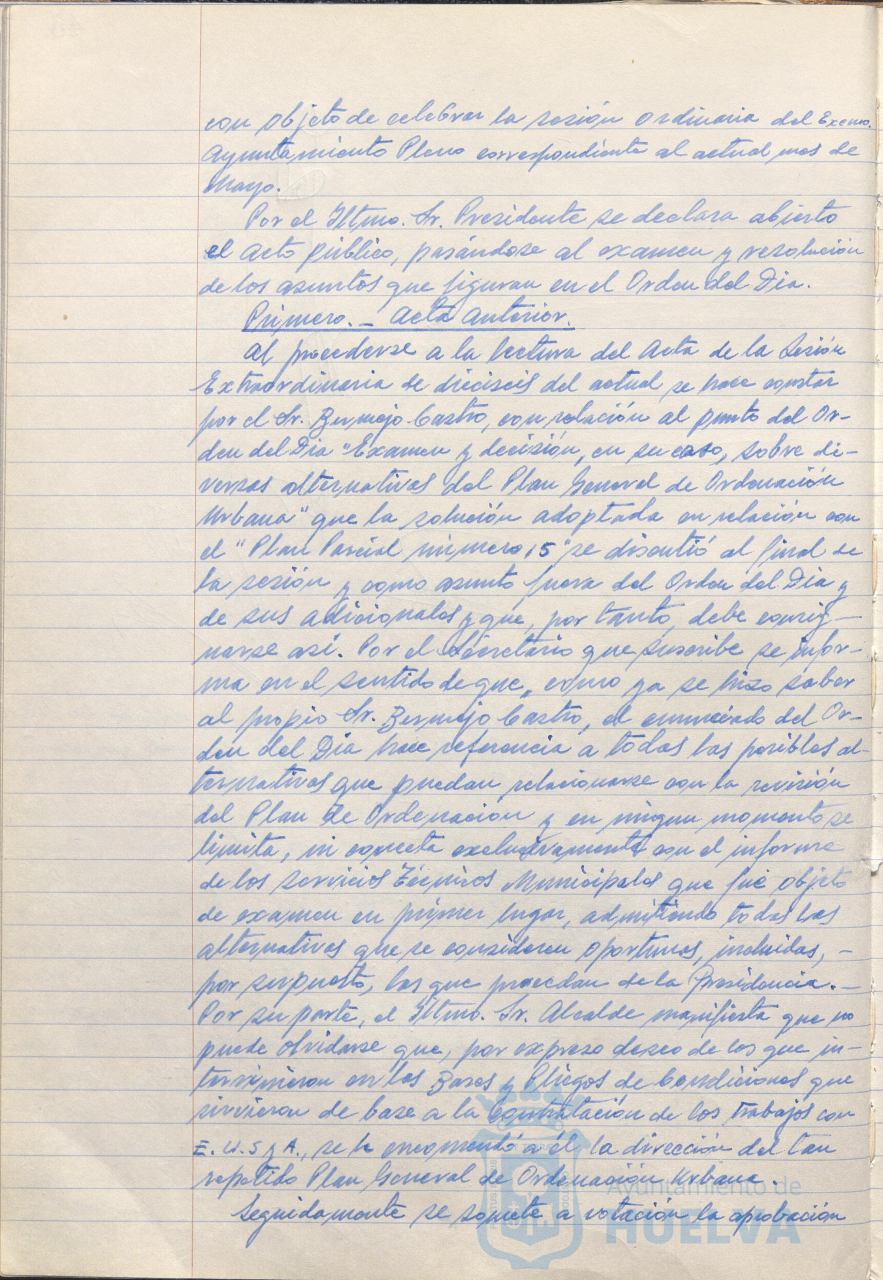 con objeto de celebrar la sesión ordinaria del Excmo.
Ayuntamiento Pleno correspondiente al actual mes de
Mayo.
Por el Iltmo. Sr. Presidente se declara abierto
el acto público, pasándose al examen y resolución
de los asuntos que figuran en el Orden del Dia.
Primero.- Acta anterior.
Al procederse a la lectura del Acta de la Sesión
Extraordinaria de dieciseis del actual se hace constar
por el Sr. Bermejo Castro, con relación al punto del Or-
den del Dia "Examen y decisión, en su caso, sobre di-
versas alternativas del Plan General de Ordenación
Urbana" que la solución adoptada en relación con
el "Plan Parcial número 15" se discutió al final de
la sesión y como asunto fuera del Orden del Dia y
de sus adicionales y que, por tanto, debe consig-
narse así. Por el Secretario que suscribe se infor-
ma en el sentido de que, como ya se hizo saber
al propio Sr. Bermejo Castro, el enunciado del Or-
den del Dia hace referencia a todas las posibles al-
ternativas que puedan relacionarse con la revisión
del Plan de Ordenacion y en ningun momento se
limita, ni conecta exclusivamente con el informe
de los Servicios Técnicos Municipales que fué objeto
de examen en primer lugar, admitiendo todas las
alternativas que se consideren oportunas, incluidas, -
por supuesto, las que procedan de la Presidencia. -
Por su parte, el Iltmo. Sr. Alcalde manifiesta que no
puede olvidarse que, por expreso deseo de los que in-
tervinieron en las Bases y Pliegos de Condiciones que
sirvieron de base a la Contratación de los trabajos con
E.U.S y A., se le encomendó a él la dirección del tan
repetido Plan General de Ordenación Urbana.
Seguidamente se somete a votación la aprobación
Ayuntamiento de
HUELVA